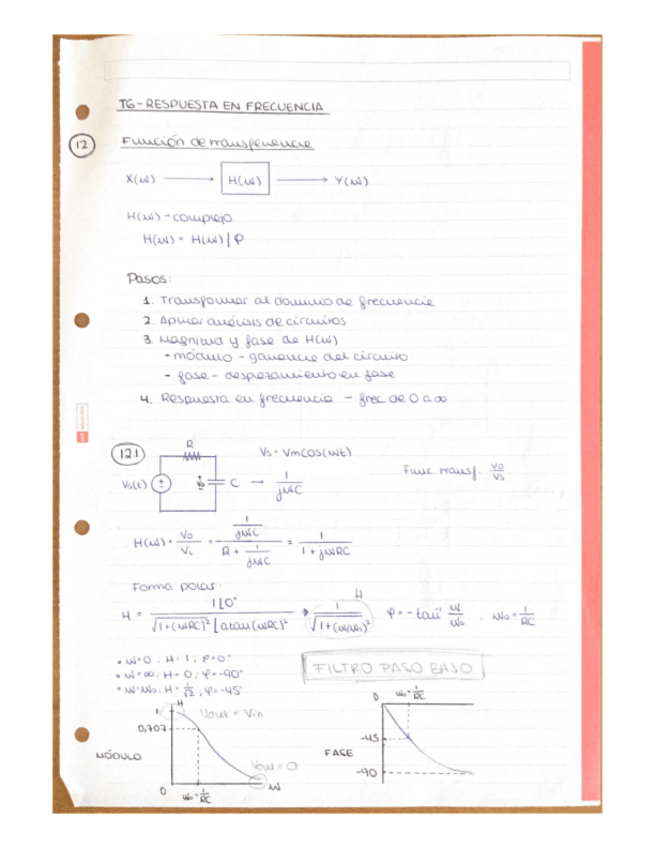 T6 - RESPUESTA EN FRECUENCIA
12 Función de transferencia
X(ω) → H(ω) → Y(ω)
H(ω) → complejo
H(ω) = H(ω) | φ
Pasos:
1. Transformar al dominio de frecuencia
2. Aplicar análisis de circuitos
3. Magnitud y fase de H(ω)
- módulo - ganancia del circuito
- fase - desplazamiento en fase
4. Respuesta en frecuencia - frec de 0 a ∞
12.1 R Vs = Vm cos(ωt)
Vs(t) + - + Vo - C → 1/jωC Func. transf. Vo/Vs
H(ω) = Vo/Vi = (1/jωC)/(R + 1/jωC) = 1/(1+jωRC)
Forma polar:
H = 1 ⌊0°/(√1+(ωRC)² ⌊atan(ωRC)²) → H 1/√1+(ω/ω₀)² φ = - tan⁻¹ ω/ω₀ , ω₀ = 1/RC
• ω=0 ; H=1 ; φ=0°
• ω=∞ ; H=0 ; φ=-90°
• ω=ω₀ ; H=1/√2 ; φ=-45°
FILTRO PASO BAJO
MÓDULO
1 H Vout = Vin
0,707
Vout = 0
0 ω₀=1/RC ω
FASE
0 ω₀=1/RC
-45
-90